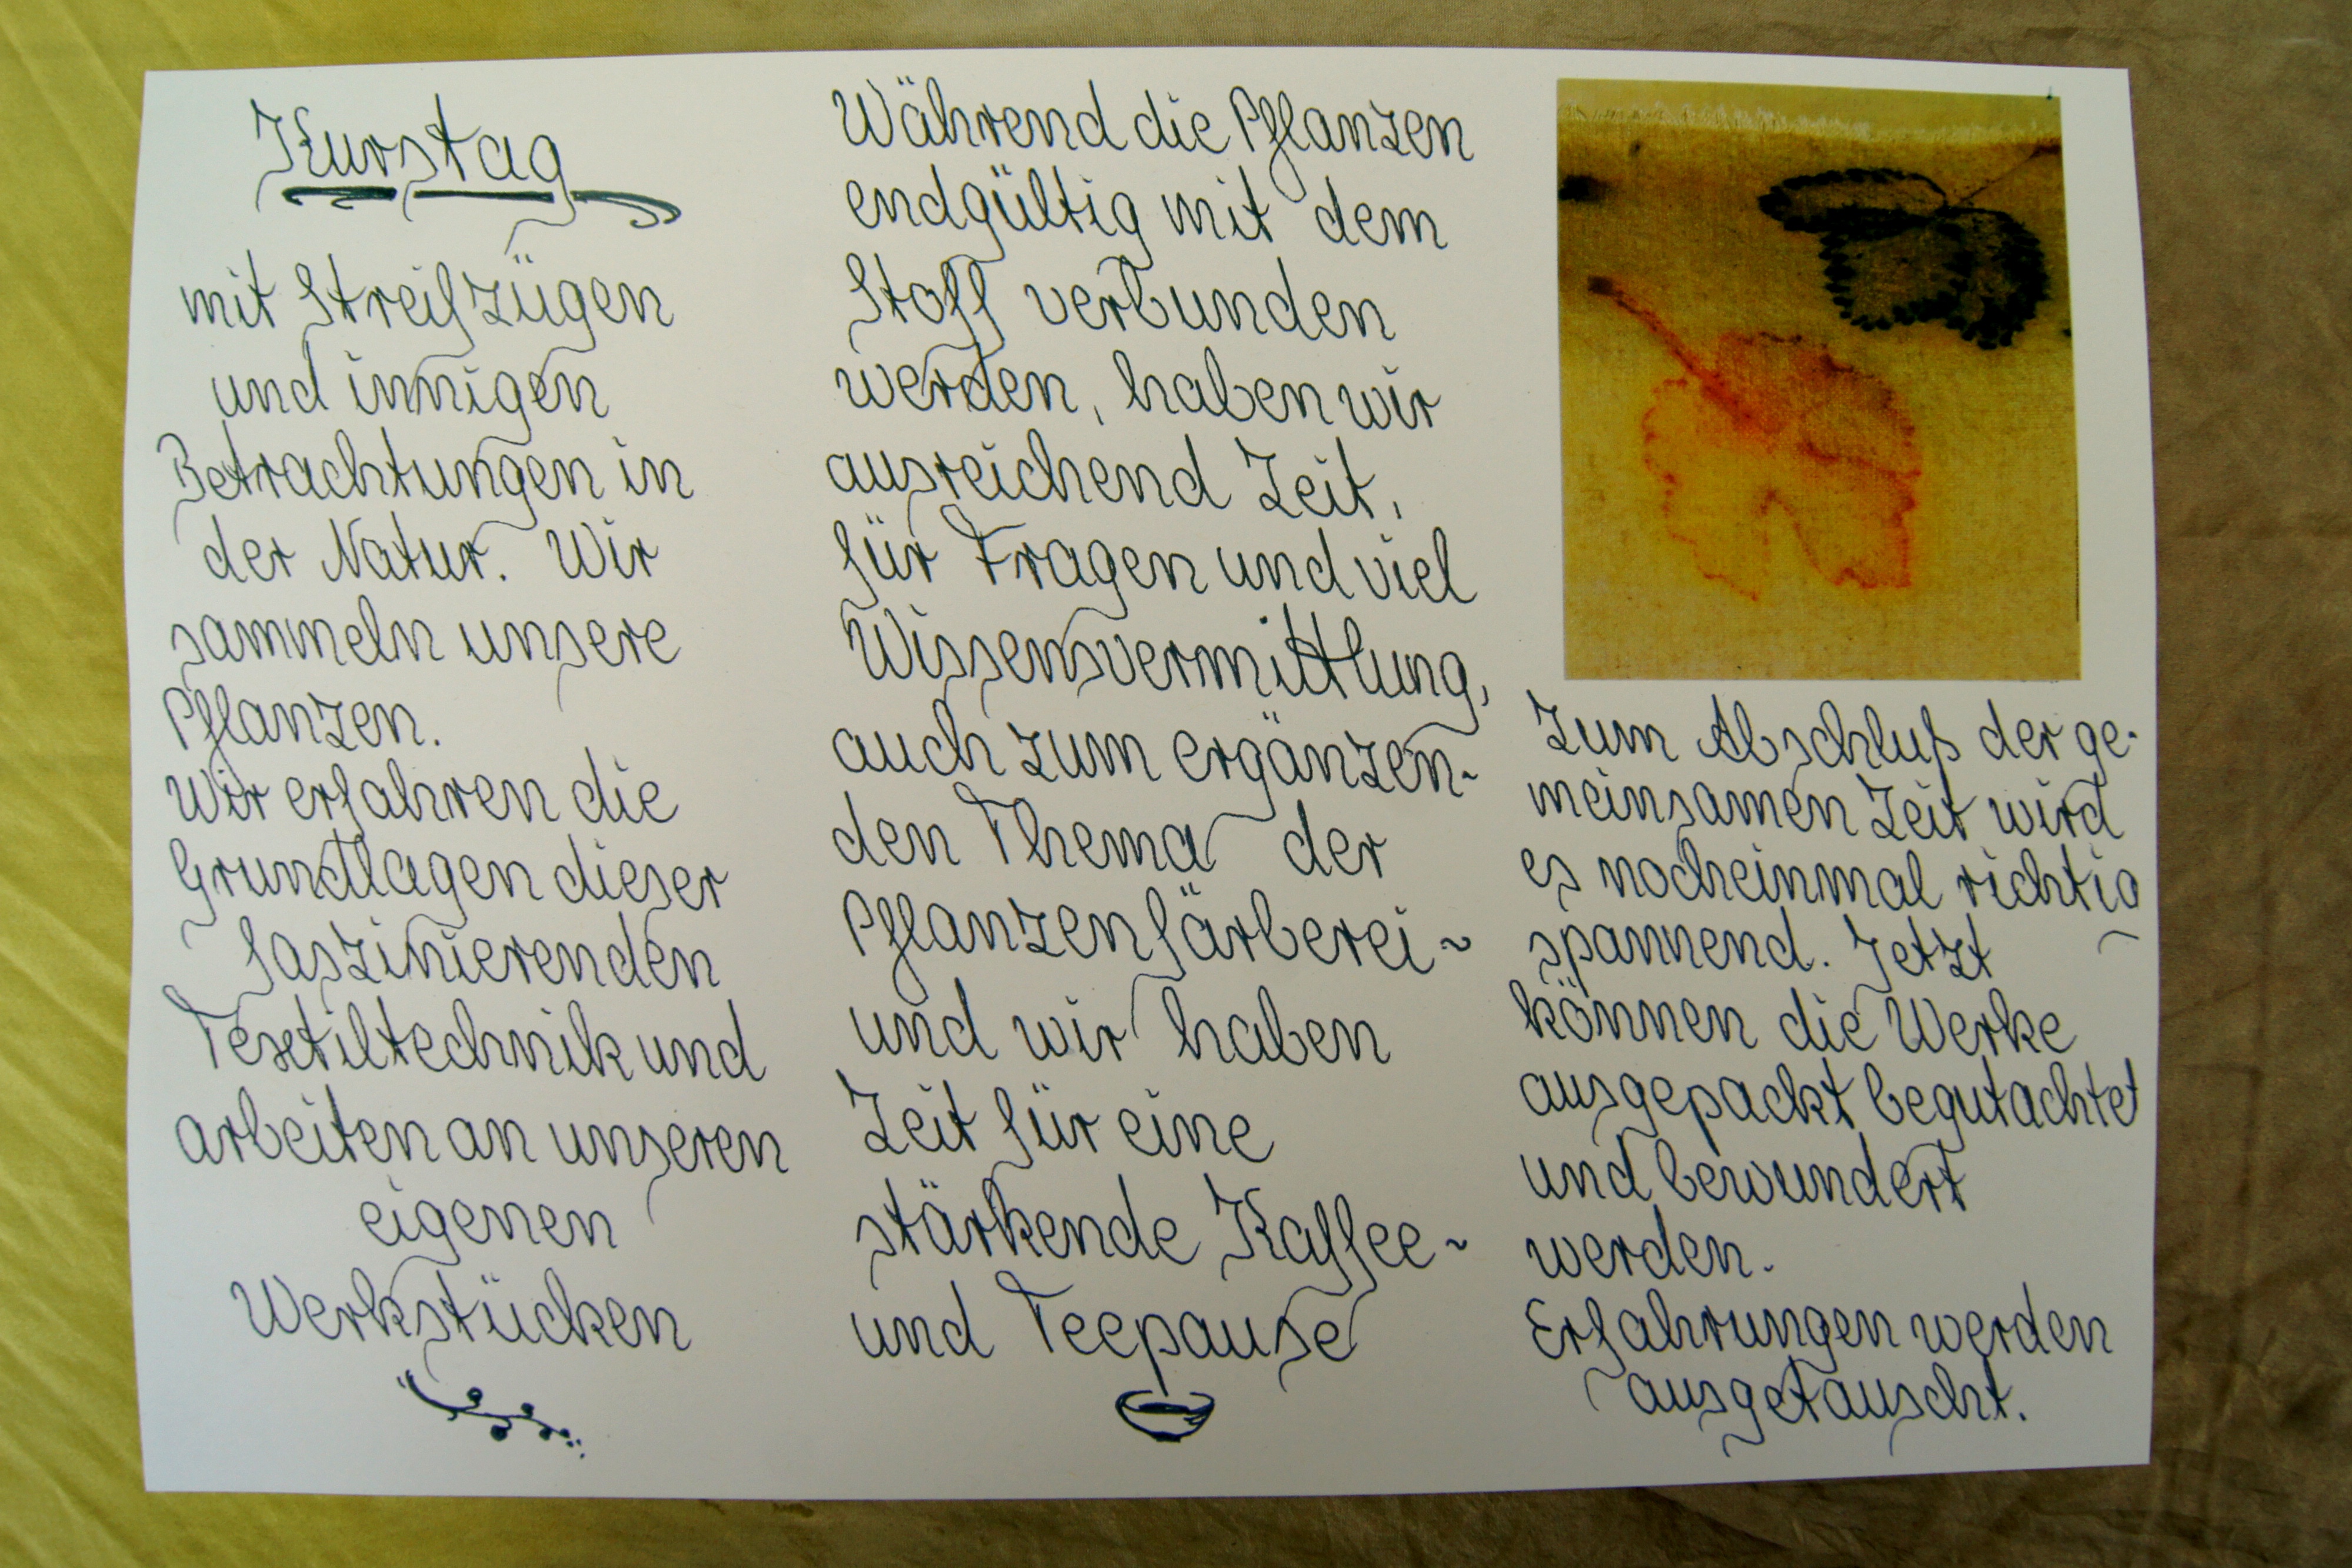 Kurstag
mit Streifzügen
und innigen
Betrachtungen in
der Natur. Wir
sammeln unsere
Pflanzen.
Wir erfahren die
Grundlagen dieser
faszinierenden
Textiltechnik und
arbeiten an unseren
eigenen
Werkstücken
Während die Pflanzen
endgültig mit dem
Stoff verbunden
werden, haben wir
ausreichend Zeit,
für Fragen und viel
Wissensvermittlung,
auch zum ergänzen-
den Thema der
Pflanzenfärberei ~
und wir haben
Zeit für eine
stärkende Kaffee ~
und Teepause
Zum Abschluß der ge-
meinsamen Zeit wird
es nocheinmal richtig
spannend. Jetzt
können die Werke
ausgepackt begutachtet
und bewundert
werden.
Erfahrungen werden
ausgetauscht.